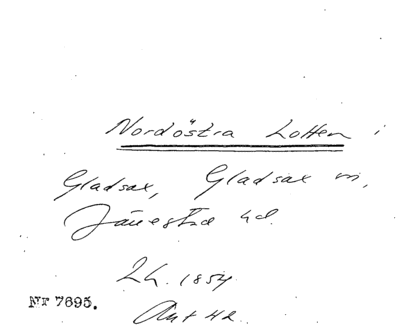 Nordöstra Lotten i
Gladsax, Gladsax sn,
Järrestad hd.
Lh. 1854
Nr 7695.
Ant 42.